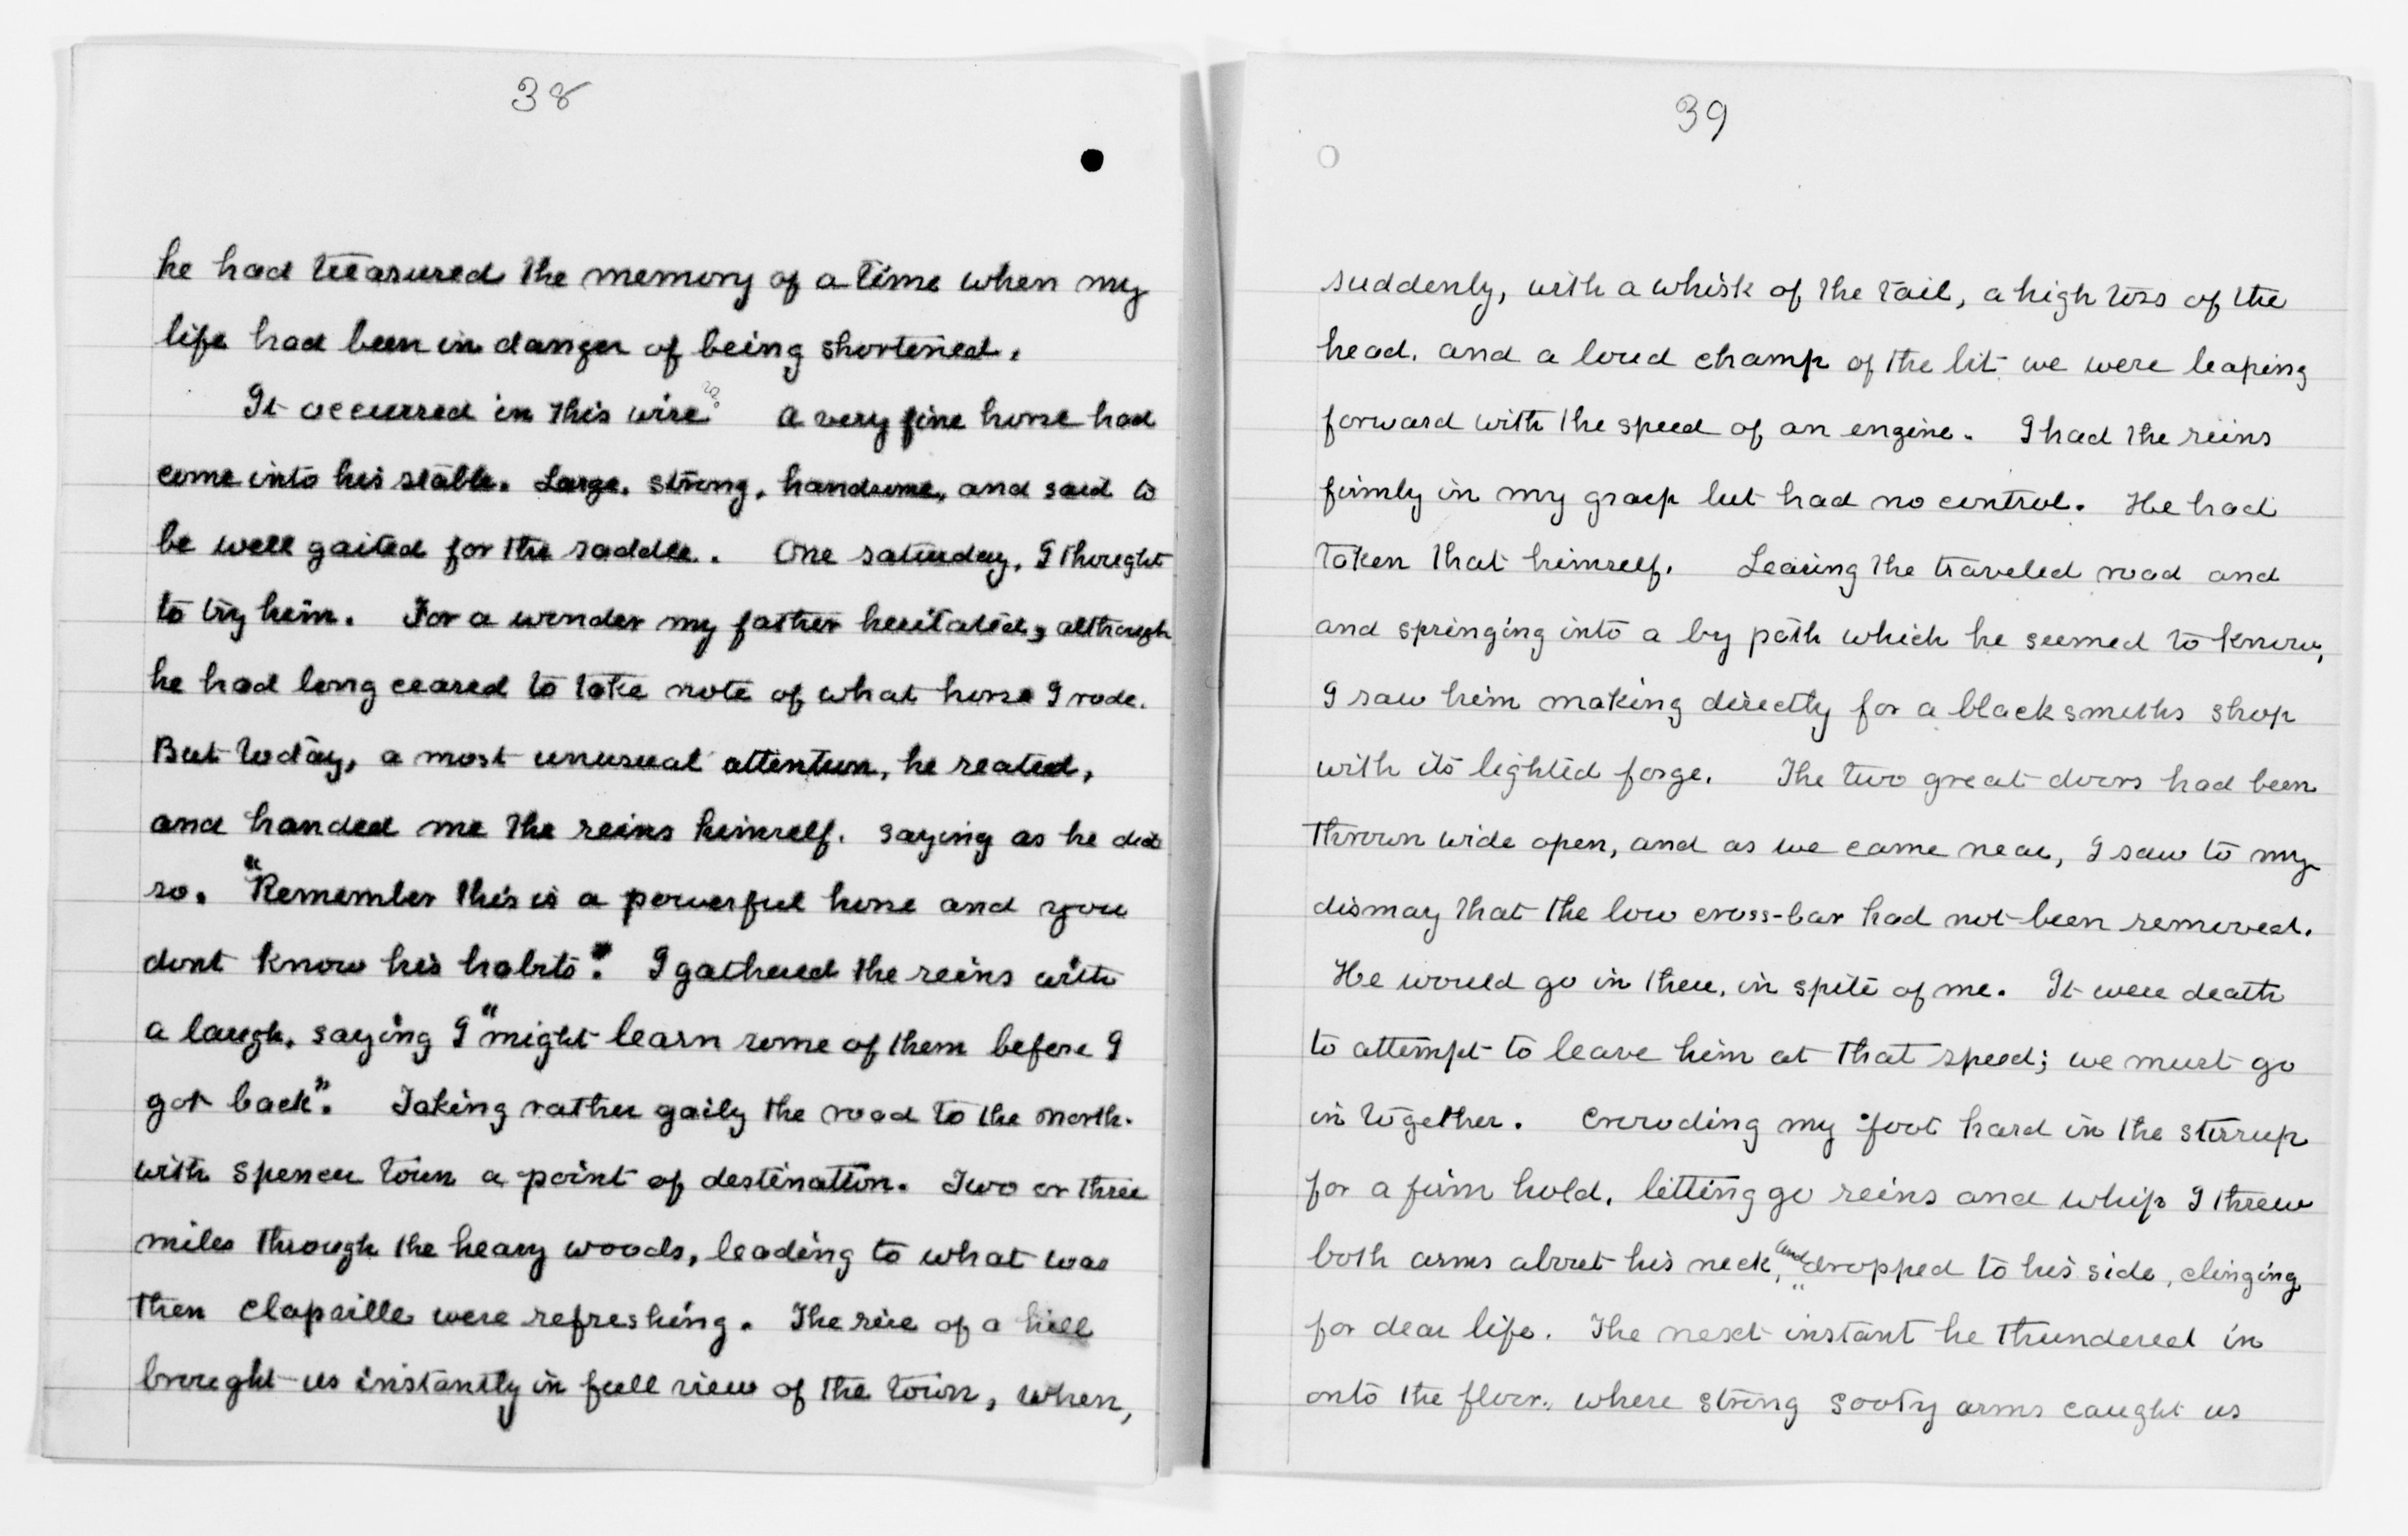 38
he had treasured the memory of a time when my
life had been in danger of being shortened.
It occurred in this wise A very fine horse had
come into his stable. Large. strong, handsome, and said to
be well gaited for the saddle. One saturday, I thought
to try him. For a wonder my father hesitated, although
he had long ceased to take note of what horse I rode.
But today, a most unusual attention, he seated,
and handed me the reins himself. saying as he did
so. "Remember this is a powerful horse and you
dont know his habits". I gathered the reins with
a laugh, saying I "might learn some of them before I
got back". Taking rather gaily the road to the north.
with spencer town a point of destination. Two or three
miles through the heavy woods, leading to what was
then clapville were refreshing. The rise of a hill
brought us instantly in full view of the town, when,
39
suddenly, with a whisk of the tail, a high toss of the
head, and a loud champ of the bit we were leaping
forward with the speed of an engine. I had the reins
firmly in my grasp but had no control. He had
taken that himself. Leaving the traveled road and
and springing into a by path which he seemed to know,
I saw him making directly for a blacksmiths shop
with its lighted forge. The two great doors had been
thrown wide open, and as we came near, I saw to my
dismay that the low cross-bar had not been removed.
He would go in there, in spite of me. It were death
to attempt to leave him at that speed; we must go
in together. Crowding my foot hard in the stirrup
for a firm hold, letting go reins and whip I threw
both arms about his neck, and dropped to his side, clinging
for dear life. The next instant he thundered in
onto the floor, where strong sooty arms caught us